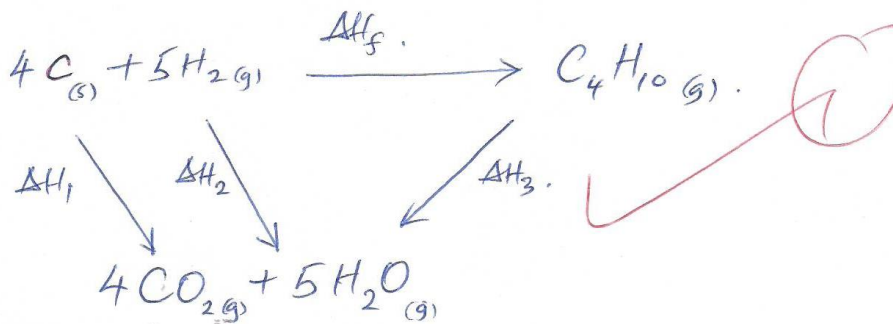 ΔH_f.
4C_(s) + 5H_2(g) ⟶ C_4H_10(g).
ΔH_1 ΔH_2 ΔH_3.
4CO_2(g) + 5H_2O_(g)